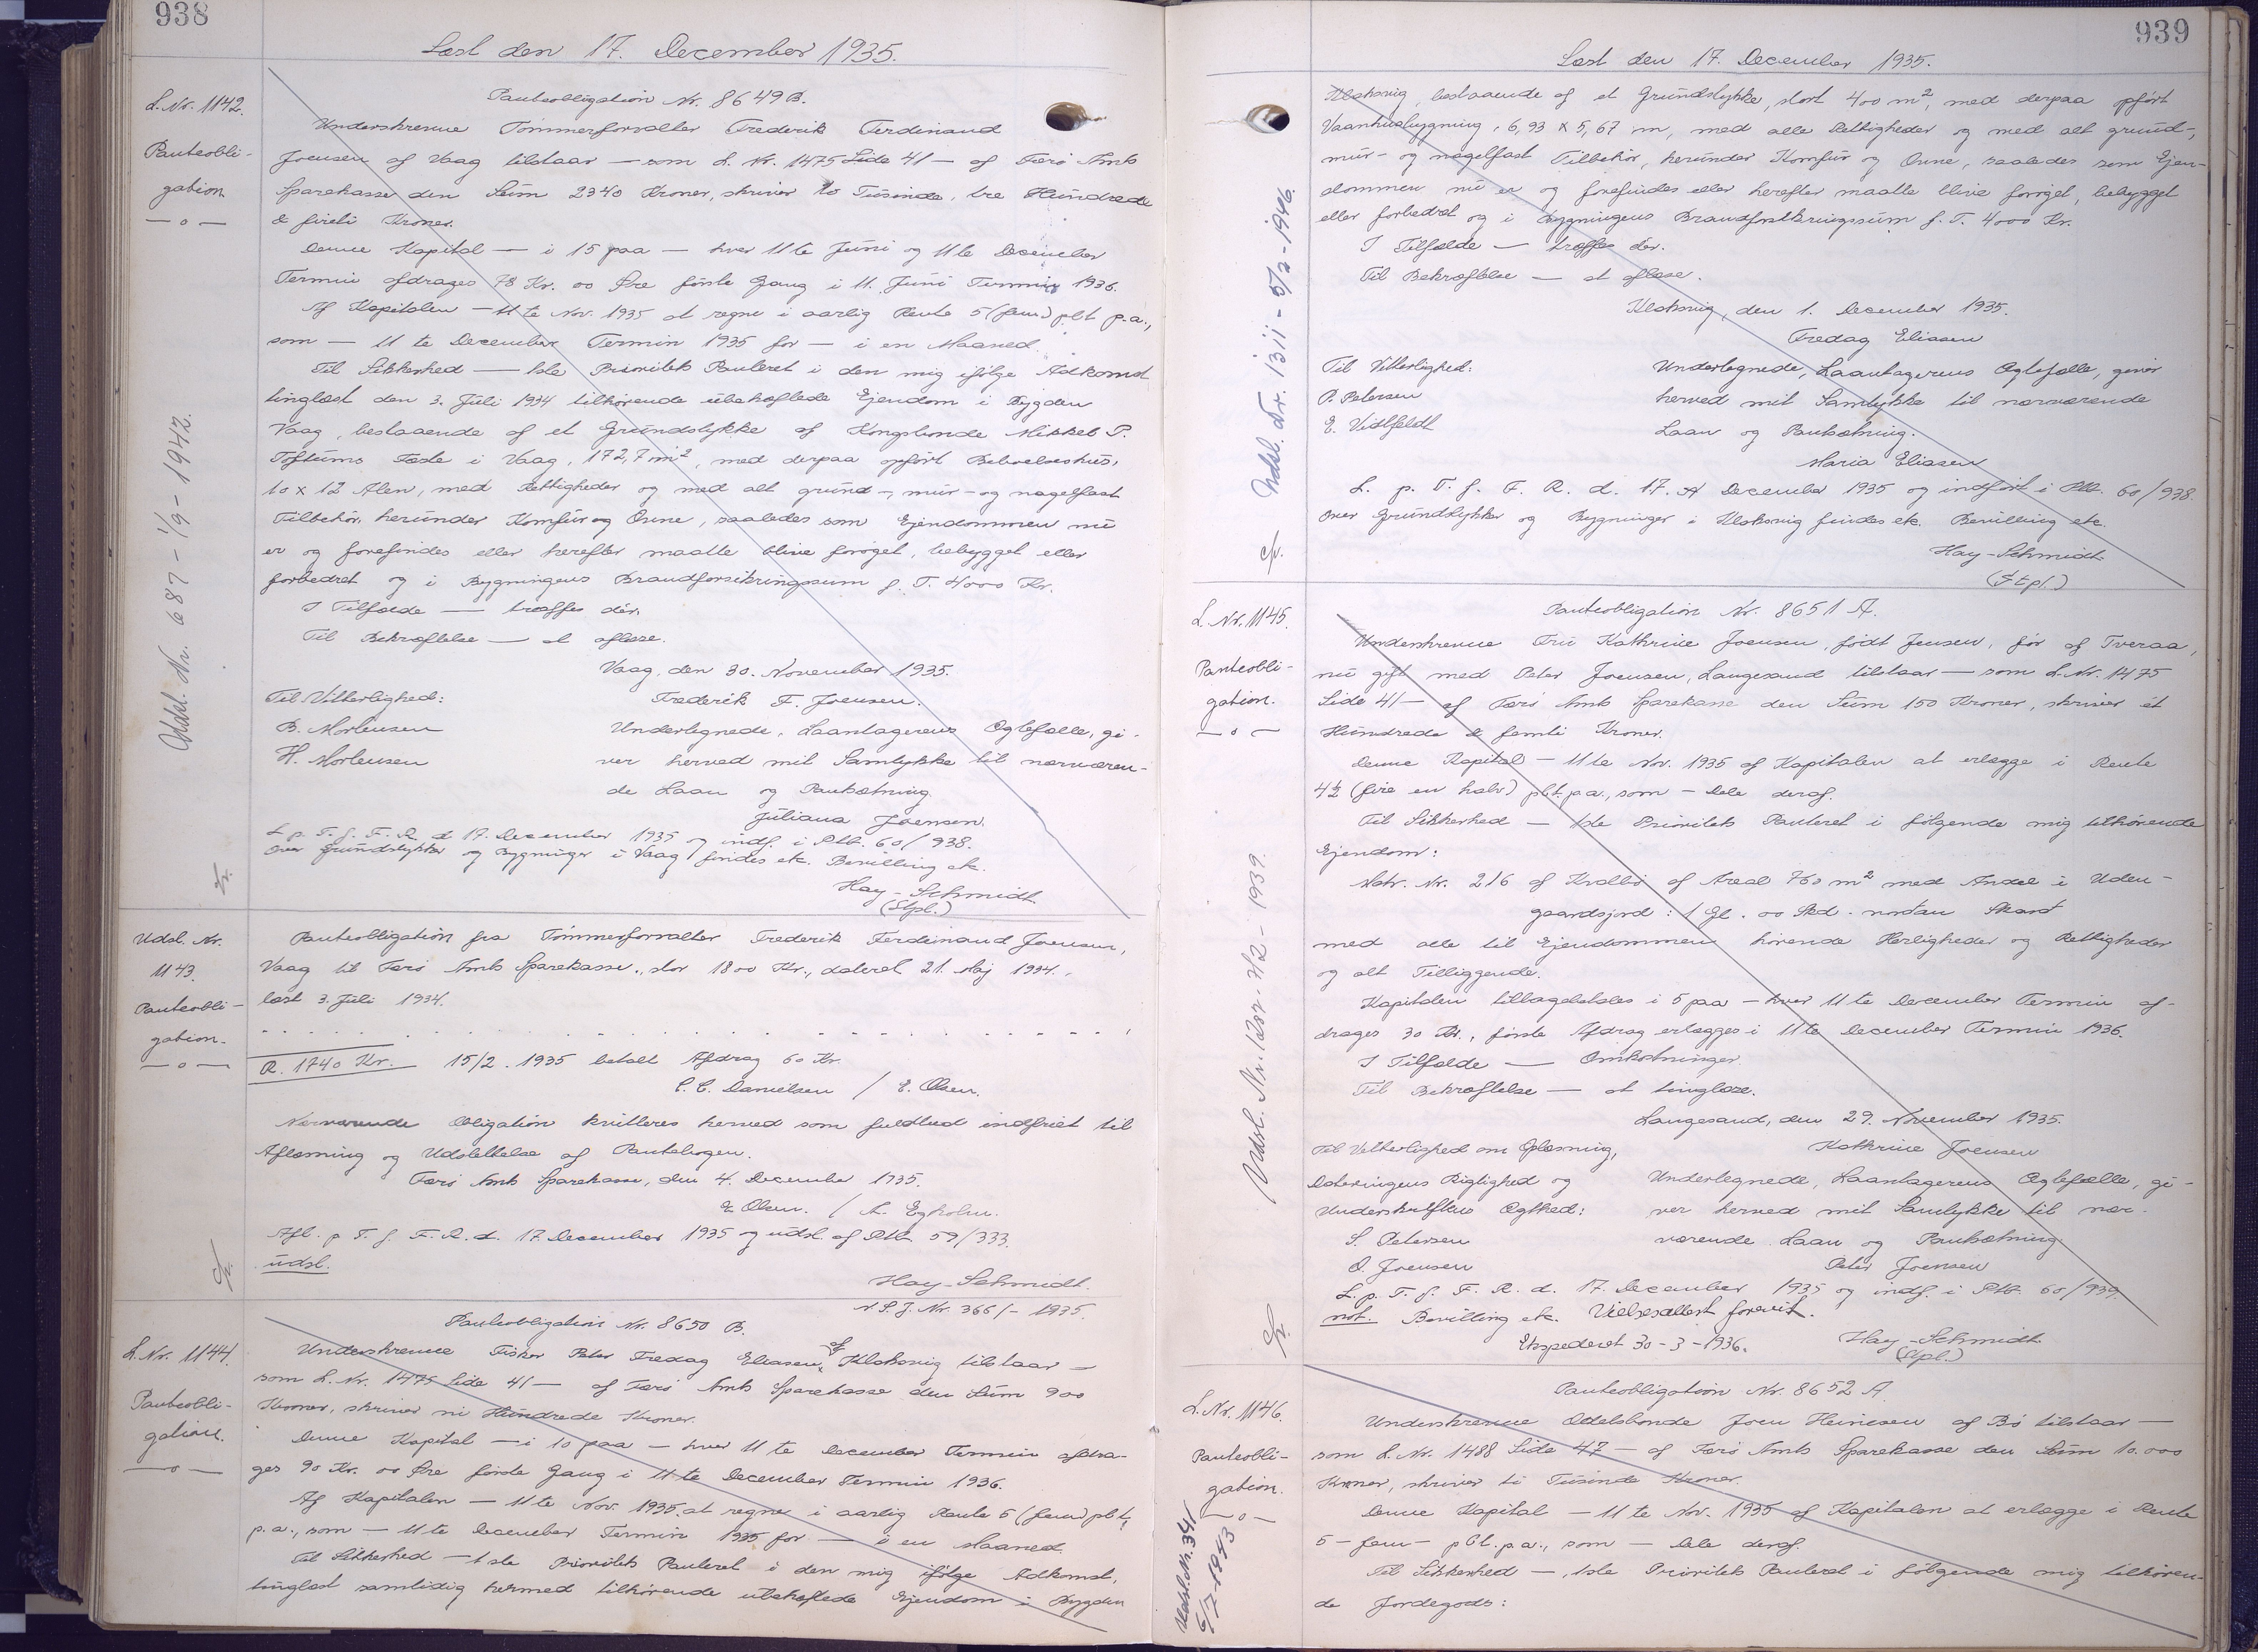 938
Læst den 17. December 1935.
L. Nr. 1142.
Panteobli-
gation.
— o —
Udsl. Nr. 687 - 1/9 - 1942.
Panteobligation Nr. 8649 B.
Underskrevne Tømmerforvalter Frederik Ferdinand
Joensen af Vaag tilstaar — som L. Nr. 1475 Side 41 — af Færø Amts
Sparekasse den Sum 2340 Kroner, skriver to Tusinde, tre Hundrede
& firti Kroner.
Denne Kapital — i 15 paa — hver 11te Juni og 11te December
Termin afdrages 78 Kr. 00 Øre første Gang i 11. Juni Termin 1936.
Af Kapitalen — 11te Nov. 1935 at regne i aarlig Rente 5 (fem) pCt p.a.,
som — 11te December Termin 1935 for — i en Maaned.
Til Sikkerhed — 1ste Prioritets Panteret i den mig ifølge Adkomst
tinglæst den 3. Juli 1934 tilhørende ubehæftede Ejendom i Bygden
Vaag, bestaaende af et Grundstykke af Kongsbonde Mikkel P.
Toftums Fæste i Vaag, 172,7 m², med derpaa opført Beboelseshus,
10 x 12 Alen, med Rettigheder og med alt grund-, mur- og nagelfast
Tilbehør, herunder Komfur og Ovne, saaledes som Ejendommen nu
er og forefindes eller herefter maatte blive forøget, bebygget eller
forbedret og i Bygningens Brandforsikringssum p. T. 4000 Kr.
I Tilfælde — træffes dér.
Til Bekræftelse — at aflæse.
Vaag, den 30. November 1935.
Til Vitterlighed: Frederik F. Joensen.
B. Mortensen Undertegnede, Laantagerens Ægtefælle, gi-
H. Mortensen ver herved mit Samtykke til nærværen-
de Laan og Pantsætning.
Juliana Joensen.
L. p. T. f. F. R. d. 17. December 1935 og indf. i Ptb. 60/938.
Over Grundstykker og Bygninger i Vaag findes etc. Bevilling etc.
Hay-Schmidt.
(Stpl.)
Udsl. Nr.
1143.
Panteobli-
gation.
— o —
Panteobligation fra Tømmerforvalter Frederik Ferdinand Joensen,
Vaag til Færø Amts Sparekasse, stor 1800 Kr., dateret 21. Maj 1934.,
læst 3. Juli 1934.
R. 1740 Kr. 15/2. 1935 betalt Afdrag 60 Kr.
C. C. Danielsen / E. Olsen.
Nærværende Obligation kvitteres herved som fuldtud indfriet til
Aflæsning og Udslettelse af Pantebogen.
Færø Amts Sparekasse, den 4. December 1935.
E Olsen. / A. Egholm.
Afl. p T. f. F. R. d. 17. December 1935 og udsl. af Ptb 59/333.
udsl.
Hay-Schmidt.
v. S. J. Nr. 366/- 1935.
L. Nr. 1144.
Panteobli-
gation.
— o —
Panteobligation Nr. 8650 B.
Underskrevne Fisker Peter Fredag Eliasen af Klaksvig tilstaar —
som L. Nr. 1475 Side 41 — af Færø Amts Sparekasse den Sum 900
Kroner, skriver ni Hundrede Kroner.
Denne Kapital — i 10 paa — hver 11te December Termin afdra-
ges 90 Kr. 00 Øre første Gang i 11te December Termin 1936.
Af Kapitalen — 11te Nov. 1935 at regne i aarlig Rente 5 (fem) pCt,
p.a., som — 11te December Termin 1935 for — i en Maaned.
Til Sikkerhed — 1ste Prioritets Panteret i den mig ifølge Adkomst,
tinglæst samtidig hermed tilhørende ubehæftede Ejendom i Bygden
939
Læst den 17. December 1935.
Udsl. Nr. 1311 - 5/2 - 1946.
Klaksvig, bestaaende af et Grundstykke, stort 400 m², med derpaa opført
Vaanhusbygning, 6,93 x 5,67 m, med alle Rettigheder og med alt grund-,
mur- og nagelfast Tilbehør, herunder Komfur og Ovne, saaledes som Ejen-
dommen nu er og forefindes eller herefter maatte blive forøget, bebygget
eller forbedret og i Bygningens Brandforsikringssum p. T. 4000 Kr.
I Tilfælde — træffes dér.
Til Bekræftelse — at aflæse.
Klaksvig, den 1. December 1935.
Fredag Eliasen
Til Vitterlighed: Undertegnede, Laantagerens Ægtefælle, giver
P. Petersen herved mit Samtykke til nærværende
E. Vidtfeldt Laan og Pantsætning.
Maria Eliasen
L. p. T. f. F. R. d. 17. December 1935 og indført i Ptb. 60/938.
Over Grundstykker og Bygninger i Klaksvig findes etc. Bevilling etc.
Hay-Schmidt.
(Stpl.)
L. Nr. 1145.
Panteobli-
gation.
— o —
Udsl. Nr. 1287 - 1939.
Panteobligation Nr. 8651 A.
Underskrevne Fru Kathrine Joensen, født Jensen, før af Tveraa,
nu gift med Peter Joensen, Langesand tilstaar — som L. Nr. 1475
Side 41 — af Færø Amts Sparekasse den Sum 150 Kroner, skriver ét
Hundrede & femti Kroner.
Denne Kapital — 11te Nov. 1935 af Kapitalen at erlægge i Rente
4½ (fire en halv) pCt. p.a., som — Dele deraf.
Til Sikkerhed — 1ste Prioritets Panteret i følgende mig tilhørende
Ejendom:
Matr. Nr. 216 af Krolbø af Areal 760 m² med Andel i Uden-
gaardsjord: 1 Gl. 00 Skd. norðan Skarð
med alle til Ejendommen hørende Herligheder og Rettigheder
og alt Tilliggende.
Kapitalen tilbagebetales i 5 paa — hver 11te December Termin af-
drages 30 Kr., første Afdrag erlægges i 11te December Termin 1936.
I Tilfælde — Omkostninger.
Til Bekræftelse — at tinglæse.
Langesand, den 29. November 1935.
Til Vitterlighed om Oplæsning, Kathrine Joensen
Dateringens Rigtighed og Undertegnede, Laantagerens Ægtefælle, gi-
Underskriftens Ægthed: ver herved mit Samtykke til nær-
S. Petersen værende Laan og Pantsætning.
O. Joensen Peter Joensen
L. p. T. f. F. R. d. 17. December 1935 og indf. i Ptb. 60/939.
not. Bevilling etc. Vielsesattest forevist.
Ekspederet 30-3-1936. Hay-Schmidt.
(Stpl.)
L. Nr. 1146.
Panteobli-
gation.
— o —
Udsl. Nr. 341
6/7-1943
Panteobligation Nr. 8652 A
Underskrevne Odelsbonde Joen Heinesen af Bø tilstaar —
som L. Nr. 1488 Side 47 — af Færø Amts Sparekasse den Sum 10.000
Kroner, skriver ti Tusinde Kroner.
Denne Kapital — 11te Nov. 1935 af Kapitalen at erlægge i Rente
5 - fem - pCt. p.a., som — Dele deraf.
Til Sikkerhed —, 1ste Prioritets Panteret i følgende mig tilhøren-
de Jordegods: